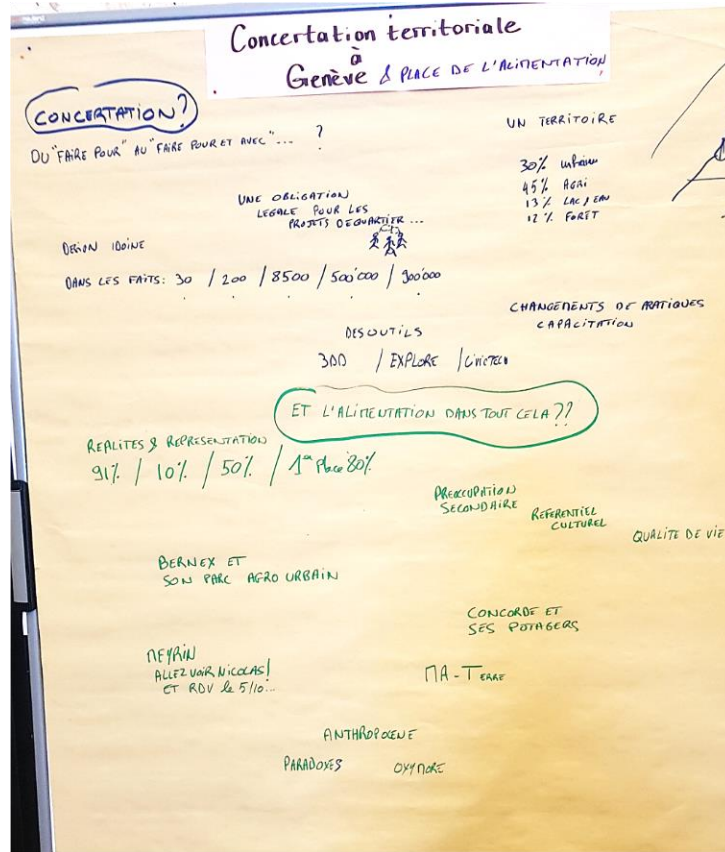 Concertation territoriale
à
Genève & PLACE DE L'ALIMENTATION
CONCERTATION?
DU "FAIRE POUR" AU "FAIRE POUR ET AVEC"... ?
UN TERRITOIRE
30% urbain
45% AGRI
13% LAC/EAU
12% FORÊT
UNE OBLIGATION
LEGALE POUR LES
PROJETS DE QUARTIER...
IDOINE
DANS LES FAITS: 30 / 200 / 8500 / 500'000 / 900'000
CHANGEMENTS DE PRATIQUES
CAPACITATION
DES OUTILS
3DD / EXPLORE / CIVICTECH
ET L'ALIMENTATION DANS TOUT CELA??
REALITES & REPRESENTATION
91% / 10% / 50% / 1ère Place 80%
PREOCCUPATION
SECONDAIRE
REFERENTIEL
CULTUREL
QUALITE DE VIE
BERNEX ET
SON PARC AGRO URBAIN
CONCORDE ET
SES POTAGERS
MEYRIN
ALLEZ VOIR NICOLAS!
ET RDV le 5/10...
MA-TERRE
ANTHROPOCENE
PARADOXES OXYMORE